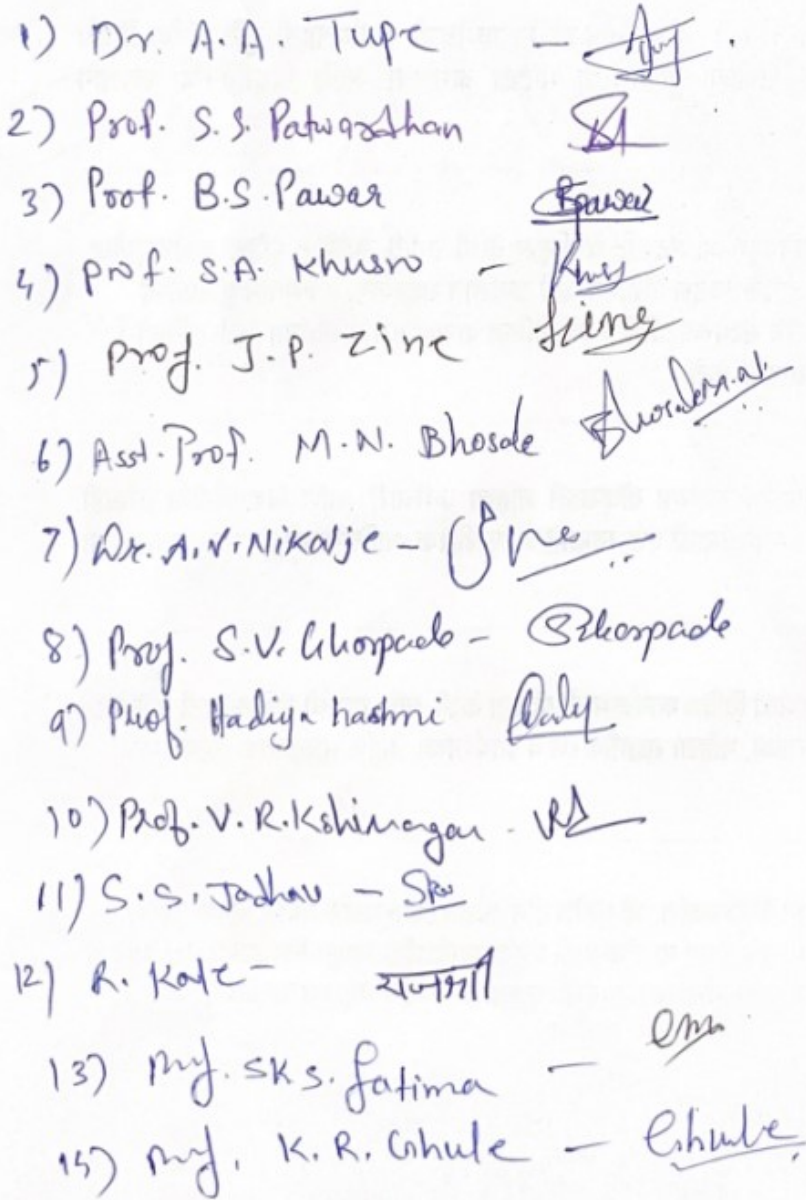 1) Dr. A.A Tupe -
2) Prof. S.S. Patwardhan
3) Prof. B.S. Pawar Bpawar
4) Prof. S.A. Khusro -
5) Prof. J.P. Zine
6) Asst. Prof. M.N. Bhosale Bhosale M.N.
7) Dr. A.V. Nikalje -
8) Prof. S.V. Ghorpade - Ghorpade
9) Prof. Hadiya hashmi
10) Prof. V.R. Kshirsagar -
11) S.S. Jadhav -
12) R. Kale -
13) Prof. SKS. fatima -
15) Prof. K.R. Ghule - Ghule